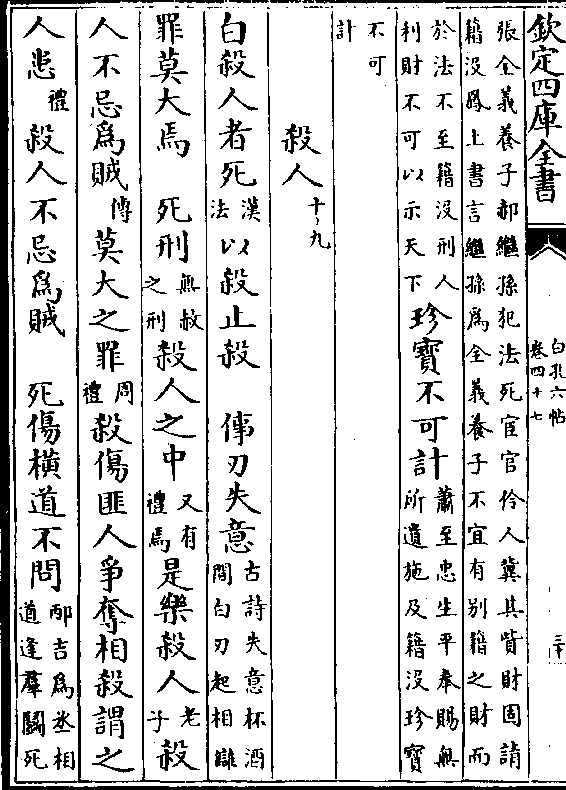 欽定四庫全書
白孔六帖
卷四十七
三十
張全義養子郝繼孫犯法死宦官伶人冀其貲財固請
籍没鳳上書言繼孫為全義養子不宜有别籍之財而
於法不至籍没刑人
利財不可以示天下
珍寶不可計
蕭至忠生平奉賜無
所遺施及籍没珍寶
不可
計
殺人十九
白殺人者死漢法以殺止殺 傳刃失意古詩失意杯酒間白刃起相讎
罪莫大焉 死刑無赦之刑殺人之中又有禮焉是樂殺人老子殺
人不忌爲賊傳莫大之罪周禮殺傷匪人爭奪相殺謂之
人患禮殺人不忌爲賊 死傷橫道不問邴吉爲丞相道逢羣鬬死